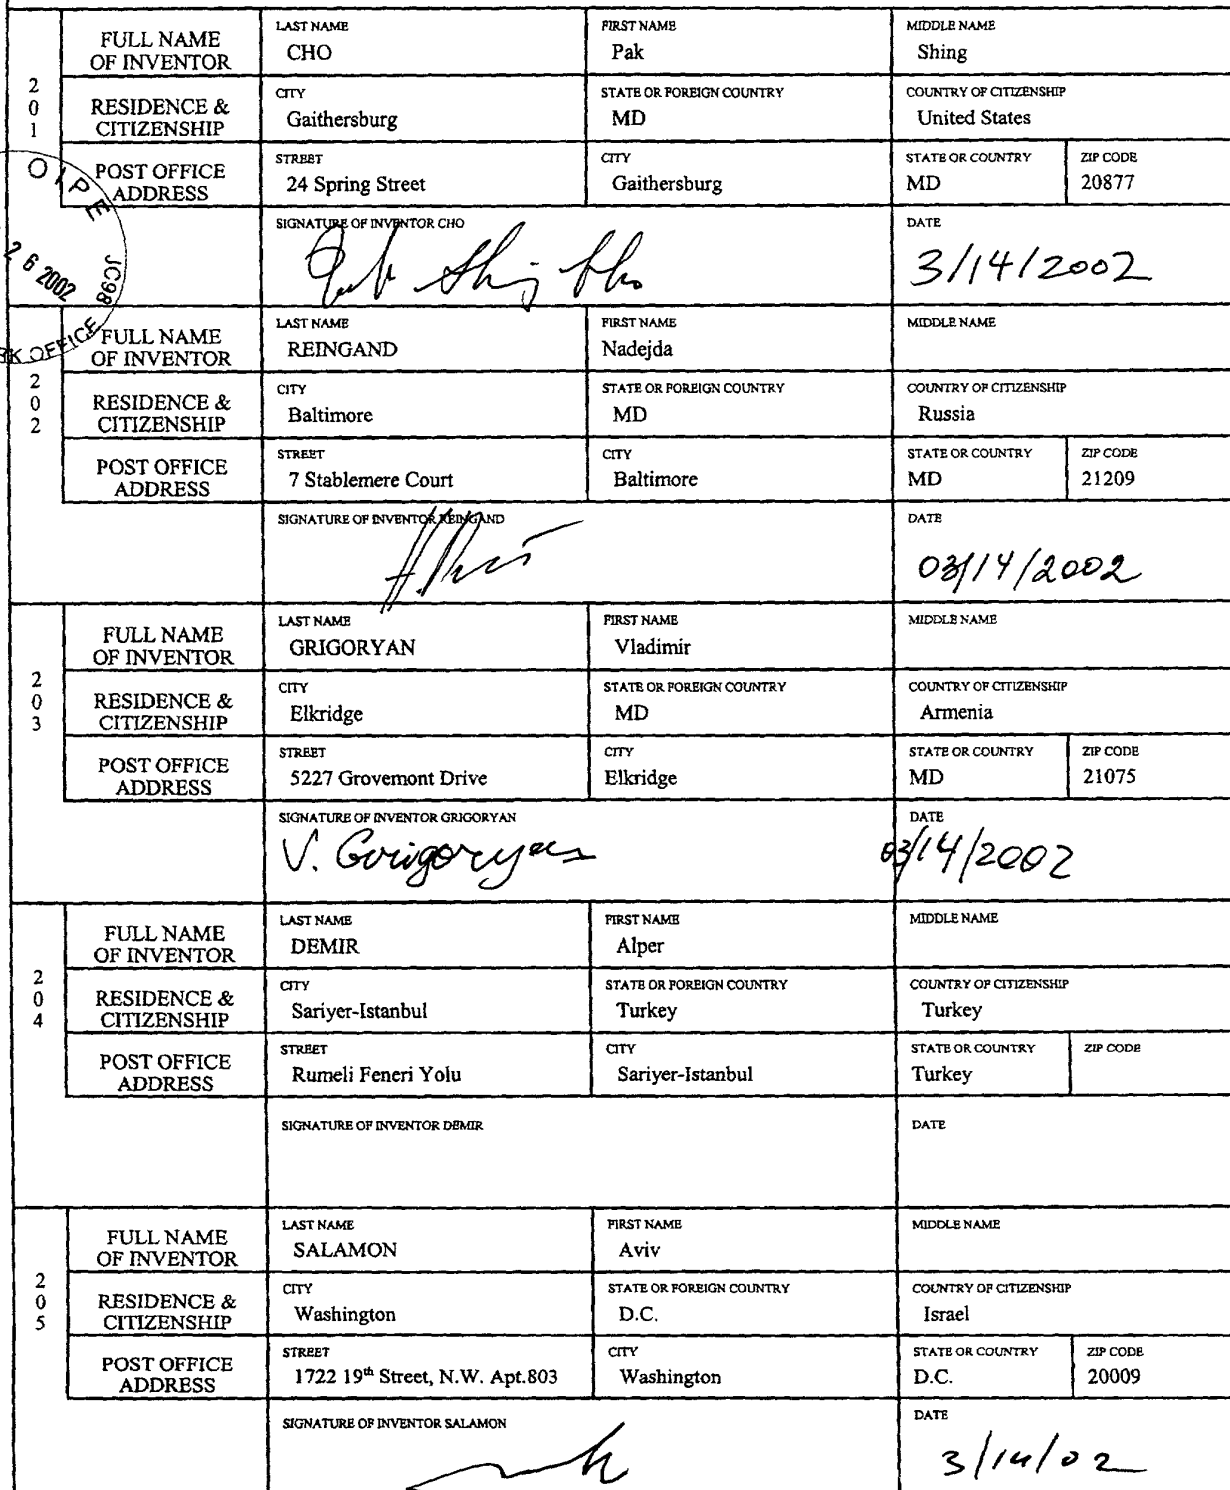 201
FULL NAME OF INVENTOR
LAST NAME CHO
FIRST NAME Pak
MIDDLE NAME Shing
RESIDENCE & CITIZENSHIP
CITY Gaithersburg
STATE OR FOREIGN COUNTRY MD
COUNTRY OF CITIZENSHIP United States
POST OFFICE ADDRESS
STREET 24 Spring Street
CITY Gaithersburg
STATE OR COUNTRY MD
ZIP CODE 20877
SIGNATURE OF INVENTOR CHO
Pak Shing Cho
DATE 3/14/2002
OIPE
26 2002
JC98
RK OFFICE
202
FULL NAME OF INVENTOR
LAST NAME REINGAND
FIRST NAME Nadejda
MIDDLE NAME
RESIDENCE & CITIZENSHIP
CITY Baltimore
STATE OR FOREIGN COUNTRY MD
COUNTRY OF CITIZENSHIP Russia
POST OFFICE ADDRESS
STREET 7 Stablemere Court
CITY Baltimore
STATE OR COUNTRY MD
ZIP CODE 21209
SIGNATURE OF INVENTOR REINGAND
DATE 03/14/2002
203
FULL NAME OF INVENTOR
LAST NAME GRIGORYAN
FIRST NAME Vladimir
MIDDLE NAME
RESIDENCE & CITIZENSHIP
CITY Elkridge
STATE OR FOREIGN COUNTRY MD
COUNTRY OF CITIZENSHIP Armenia
POST OFFICE ADDRESS
STREET 5227 Grovemont Drive
CITY Elkridge
STATE OR COUNTRY MD
ZIP CODE 21075
SIGNATURE OF INVENTOR GRIGORYAN
V. Grigoryan
DATE 03/14/2002
204
FULL NAME OF INVENTOR
LAST NAME DEMIR
FIRST NAME Alper
MIDDLE NAME
RESIDENCE & CITIZENSHIP
CITY Sariyer-Istanbul
STATE OR FOREIGN COUNTRY Turkey
COUNTRY OF CITIZENSHIP Turkey
POST OFFICE ADDRESS
STREET Rumeli Feneri Yolu
CITY Sariyer-Istanbul
STATE OR COUNTRY Turkey
ZIP CODE
SIGNATURE OF INVENTOR DEMIR
DATE
205
FULL NAME OF INVENTOR
LAST NAME SALAMON
FIRST NAME Aviv
MIDDLE NAME
RESIDENCE & CITIZENSHIP
CITY Washington
STATE OR FOREIGN COUNTRY D.C.
COUNTRY OF CITIZENSHIP Israel
POST OFFICE ADDRESS
STREET 1722 19th Street, N.W. Apt.803
CITY Washington
STATE OR COUNTRY D.C.
ZIP CODE 20009
SIGNATURE OF INVENTOR SALAMON
DATE 3/14/02